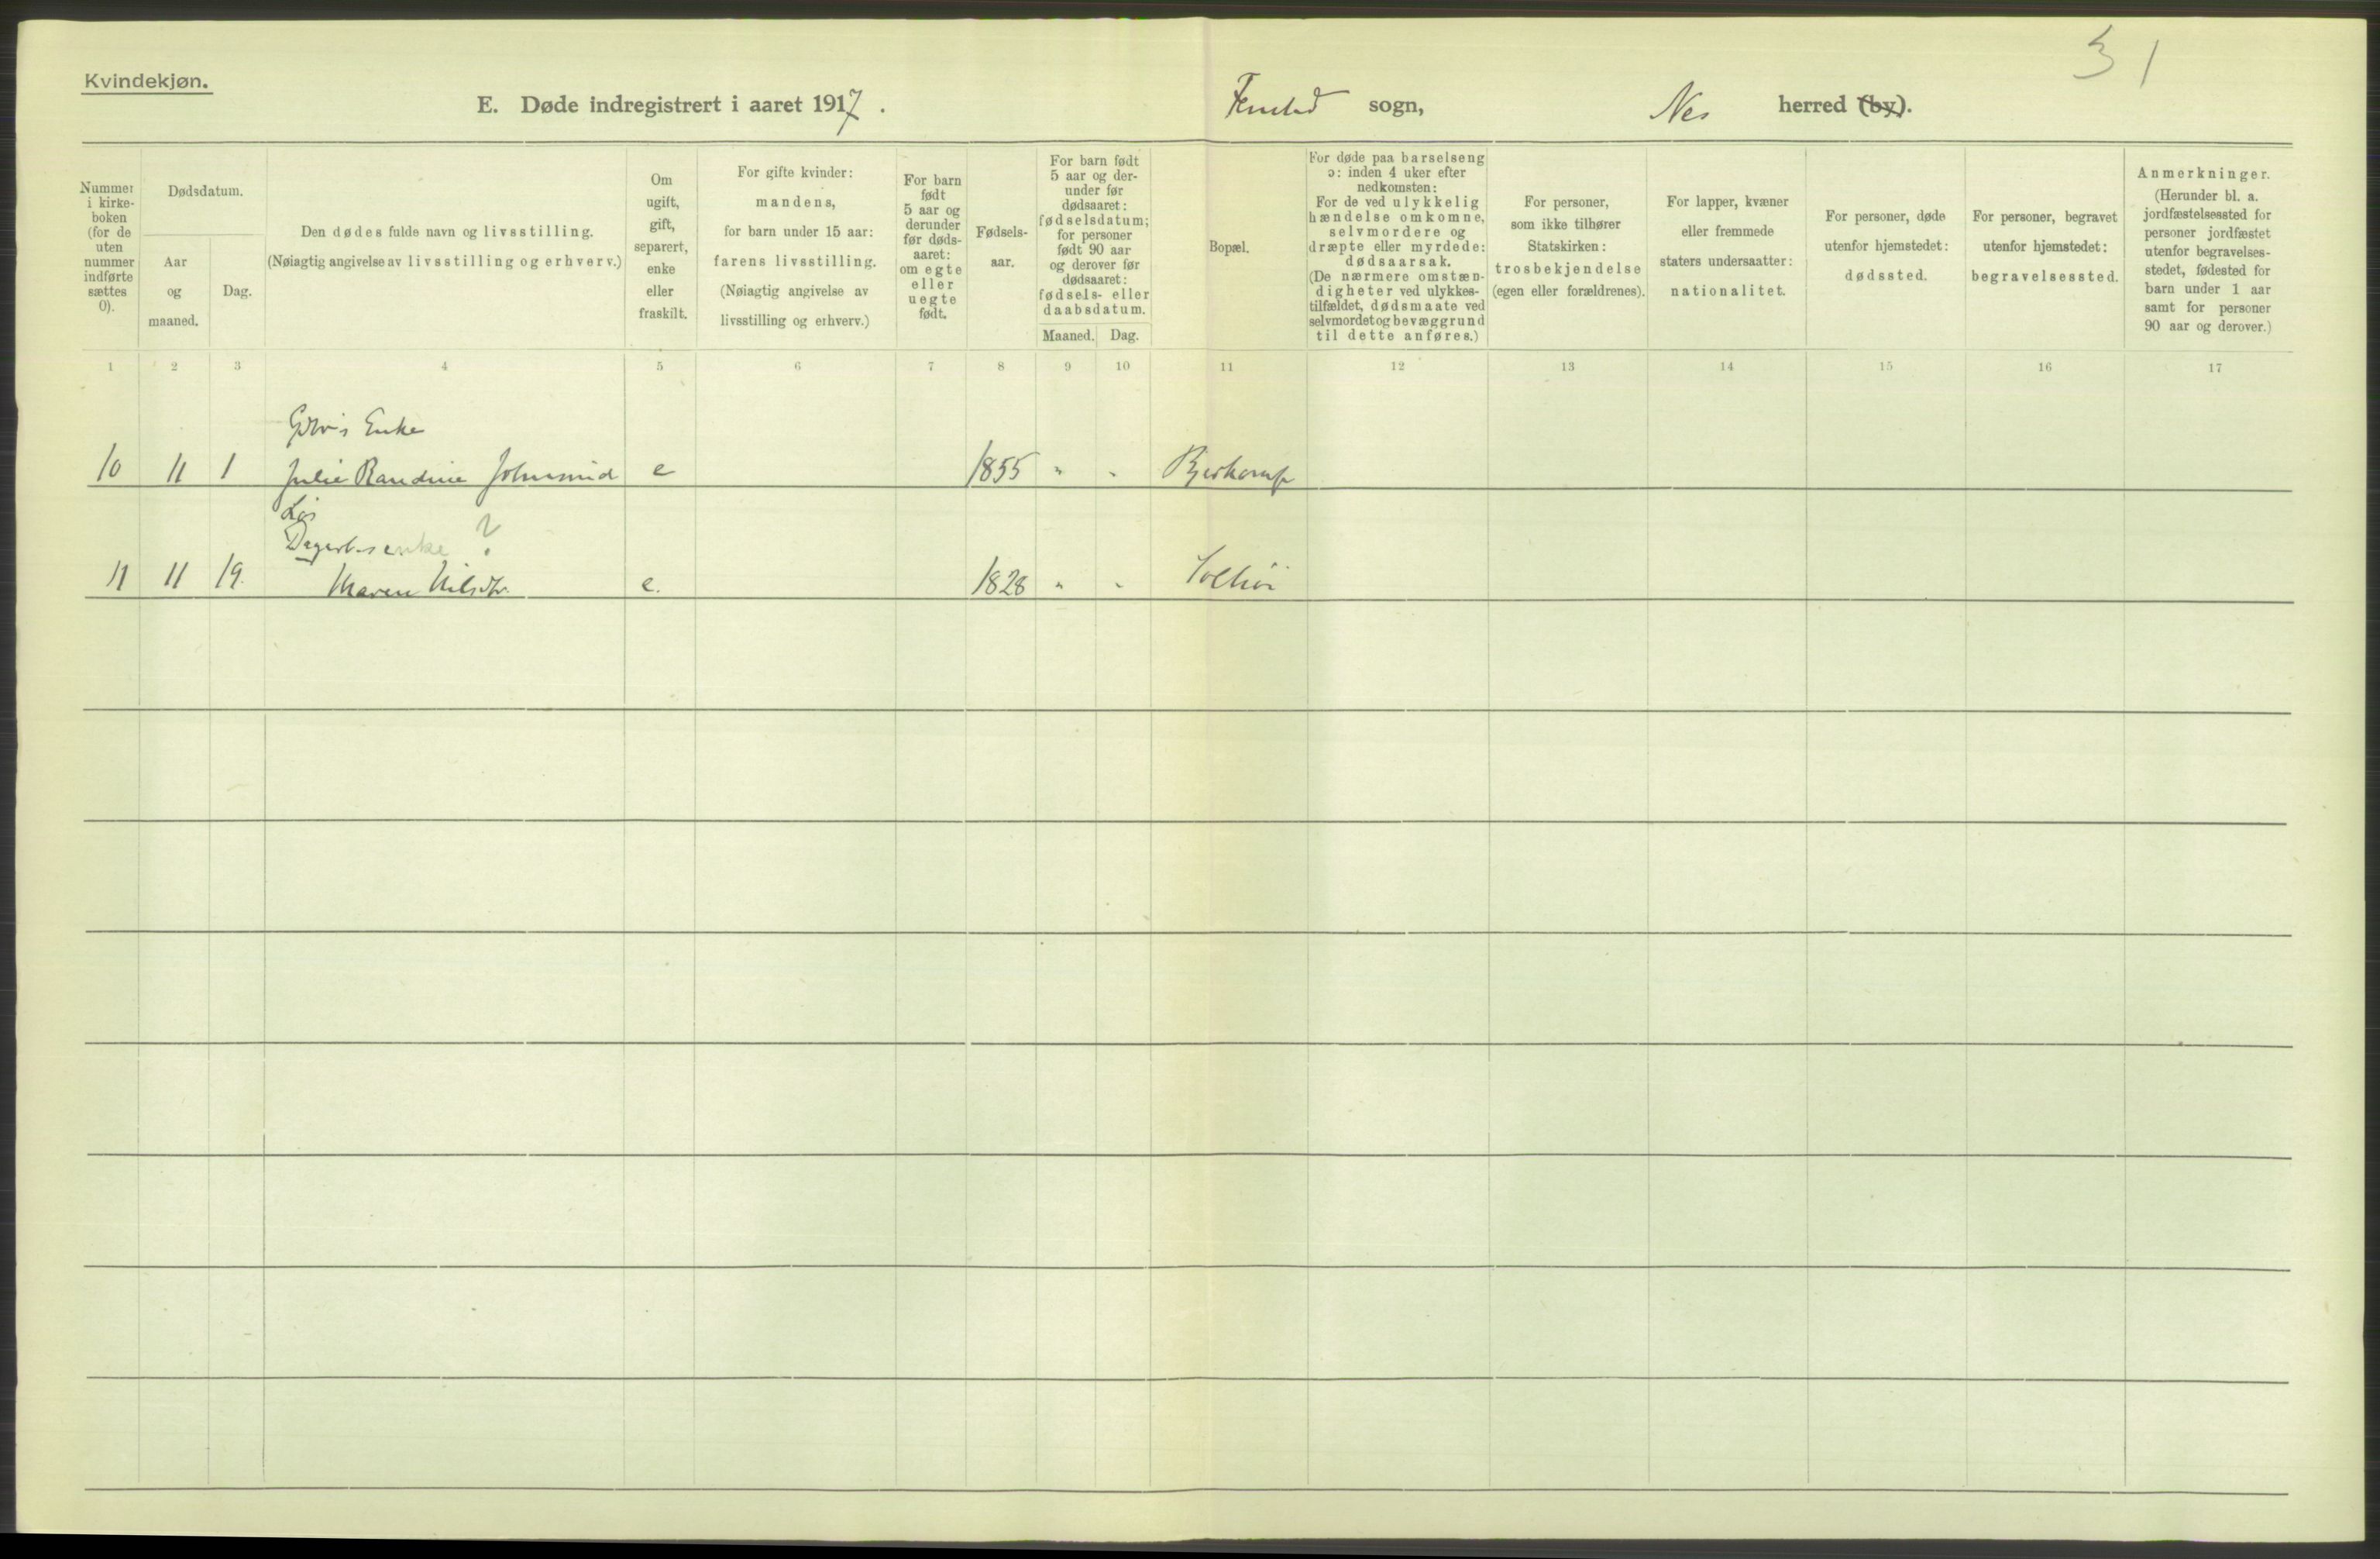 31
Kvindekjøn.
E. Døde indregistrert i aaret 1917. Fenstad sogn, Nes herred (by).
Nummer i kirkeboken (for de uten nummer indførte sættes 0).
Dødsdatum.
Aar og maaned.
Dag.
Den dødes fulde navn og livsstilling.
(Nøiagtig angivelse av livsstilling og erhverv.)
Om ugift, gift, separert, enke eller fraskilt.
For gifte kvinder:
mandens,
for barn under 15 aar:
farens livsstilling.
(Nøiagtig angivelse av
livsstilling og erhverv.)
For barn
født
5 aar og
derunder
før døds-
aaret:
om egte
eller
uegte
født.
Fødsels-
aar.
For barn født
5 aar og der-
under før
dødsaaret:
fødselsdatum;
for personer
født 90 aar
og derover før
dødsaaret:
fødsels- eller
daabsdatum.
Maaned. Dag.
Bopæl.
For døde paa barselseng
ɔ: inden 4 uker efter
nedkomsten:
For de ved ulykkelig
hændelse omkomne,
selvmordere og
dræpte eller myrdede:
dødsaarsak.
(De nærmere omstæn-
digheter ved ulykkes-
tilfældet, dødsmaate ved
selvmordet og bevæggrund
til dette anføres.)
For personer,
som ikke tilhører
Statskirken:
trosbekjendelse
(egen eller forældrenes).
For lapper, kvæner
eller fremmede
staters undersaatter:
nationalitet.
For personer, døde
utenfor hjemstedet:
dødssted.
For personer, begravet
utenfor hjemstedet:
begravelsessted.
Anmerkninger.
(Herunder bl. a.
jordfæstelsessted for
personer jordfæstet
utenfor begravelses-
stedet, fødested for
barn under 1 aar
samt for personer
90 aar og derover.)
1 2 3 4 5 6 7 8 9 10 11 12 13 14 15 16 17
Enke
10 11 1 Julie Randine e 1855 " "
enke ?
11 11 19. Maren Nilsdtr. e. 1828 " "